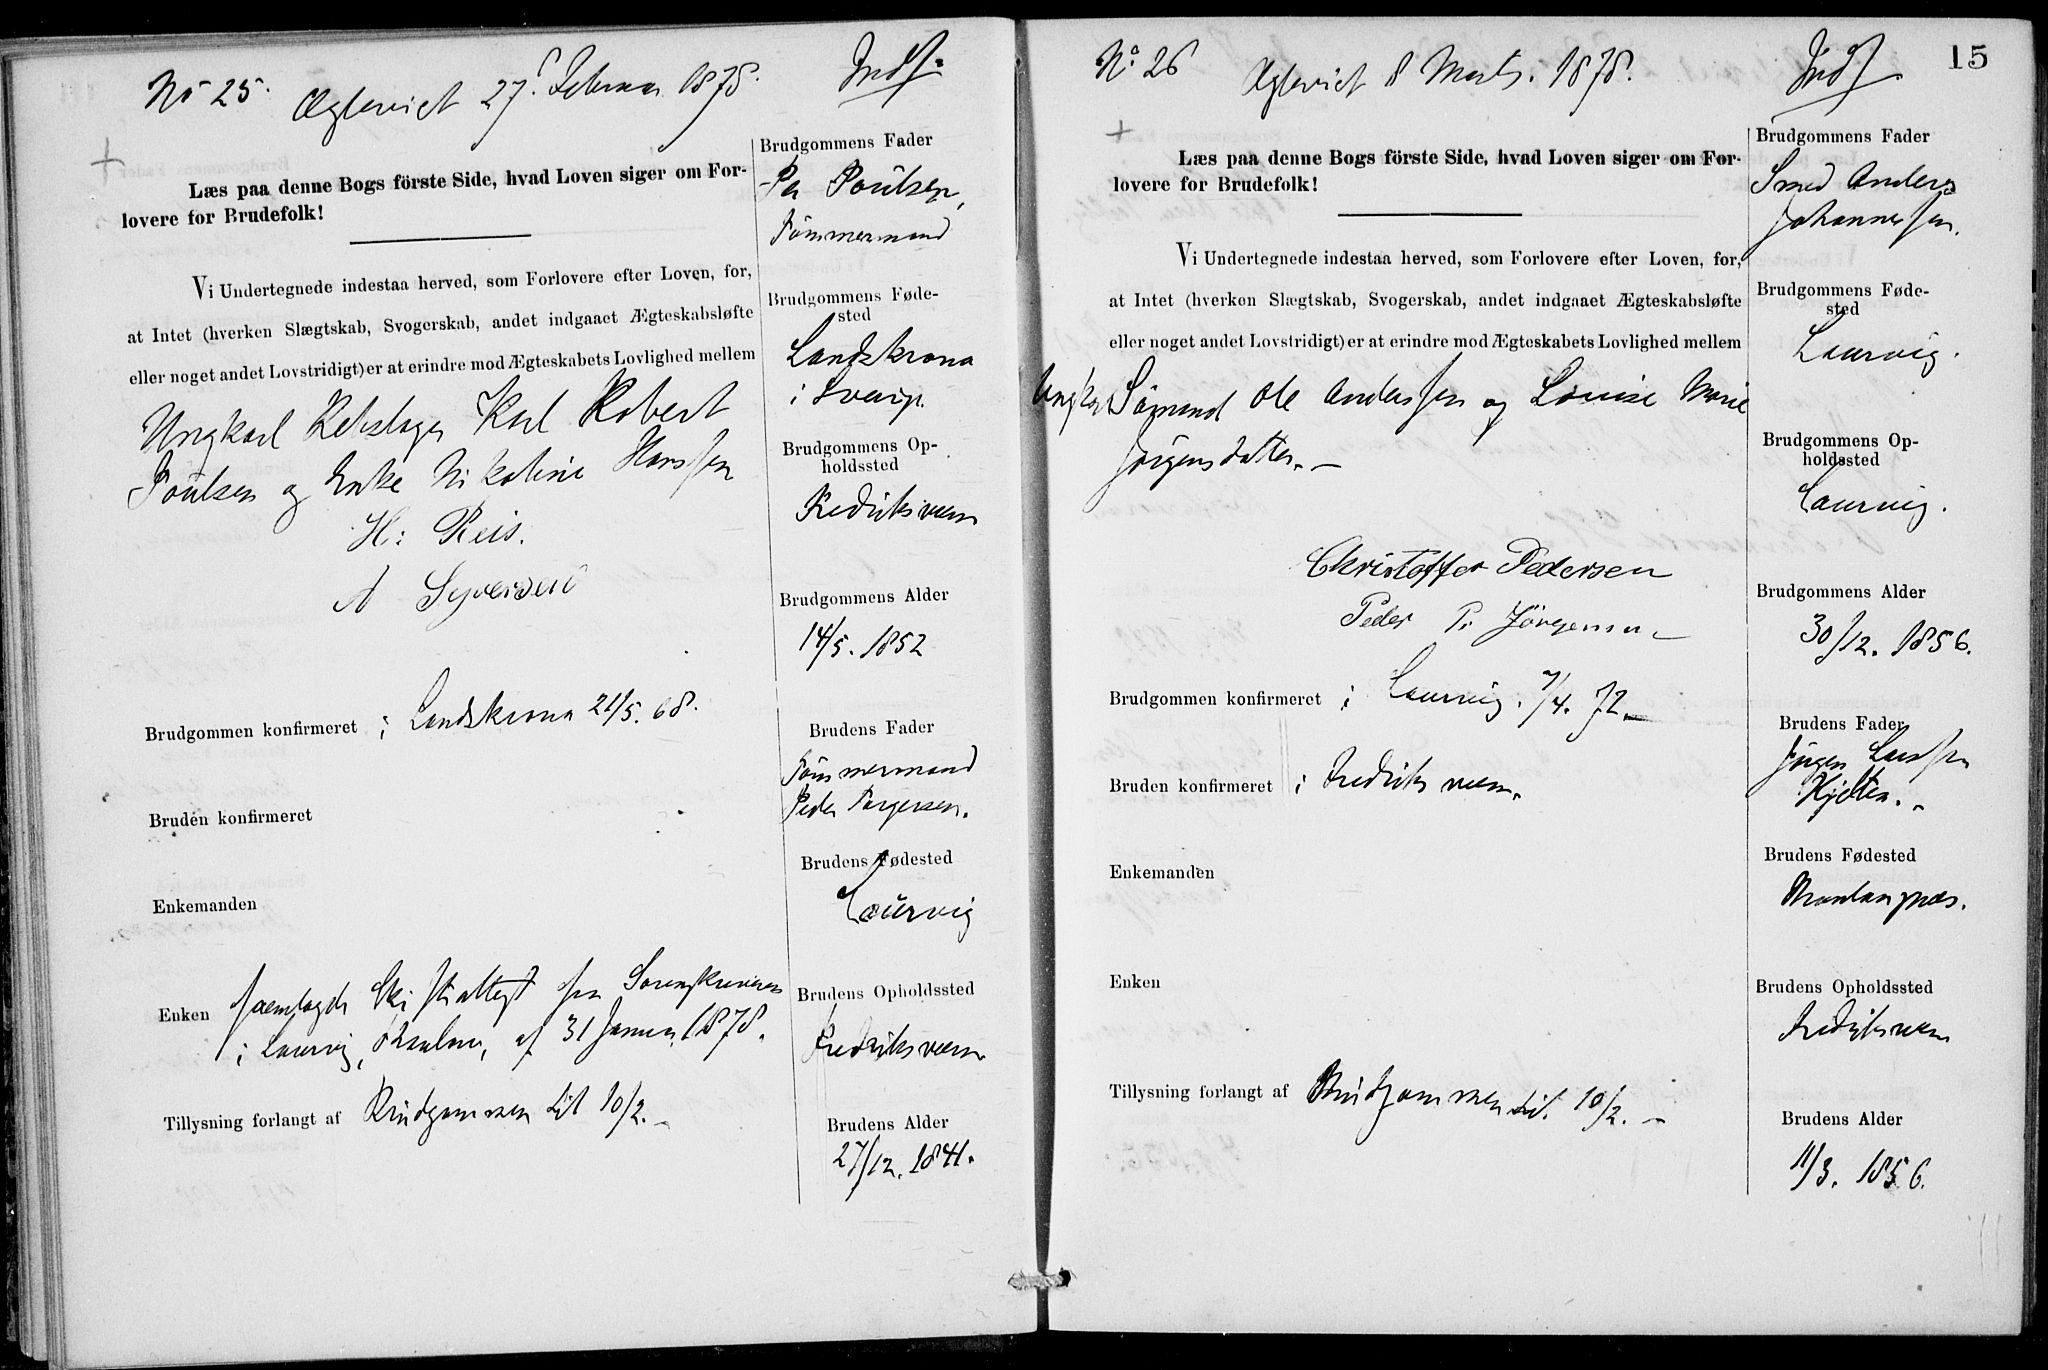 No 25. Ægteviet 27. Februar 1878. Indf.
Læs paa denne Bogs förste Side, hvad Loven siger om For-
lovere for Brudefolk!
Vi Undertegnede indestaa herved, som Forlovere efter Loven, for,
at Intet (hverken Slægtskab, Svogerskab, andet indgaaet Ægteskabsløfte
eller noget andet Lovstridigt) er at erindre mod Ægteskabets Lovlighed mellem
Ungkarl Rebslager Karl Robert
Poulsen og Enke Nikoline Hanssen
H: Reis.
A Syversen
Brudgommen konfirmeret i Landskrona 21/5. 68.
Bruden konfirmeret
Enkemanden
Enken fremlagde Skifteattest fra Sorenskriveren
i Laurvig, af 31 Januar 1878.
Tillysning forlangt af Brudgommen til 10/2.
Brudgommens Fader
Per Poulsen,
Tömmermand
Brudgommens Føde-
sted
Landskrona
i Sverig.
Brudgommens Op-
holdssted
Fredriksværn
Brudgommens Alder
14/5. 1852
Brudens Fader
Tömmermand
Peder Torgersen.
Brudens Fødested
Laurvig
Brudens Opholdssted
Fredriksværn
Brudens Alder
27/12. 1841.
No 26 Ægteviet 8 Marts. 1878. Indf
15
Læs paa denne Bogs förste Side, hvad Loven siger om For-
lovere for Brudefolk!
Vi Undertegnede indestaa herved, som Forlovere efter Loven, for,
at Intet (hverken Slægtskab, Svogerskab, andet indgaaet Ægteskabsløfte
eller noget andet Lovstridigt) er at erindre mod Ægteskabets Lovlighed mellem
Ungkarl Sömand Ole Anderssen og Louise Marie
Jörgensdatter.
Christoffer Pedersen
Peder P. Jörgensen
Brudgommen konfirmeret i Laurvig. 7/4. 72.
Bruden konfirmeret i Fredriksværn.
Enkemanden
Enken
Tillysning forlangt af Brudgommen til. 10/2.
Brudgommens Fader
Smed Anders
Johannessen.
Brudgommens Føde-
sted
Laurvig.
Brudgommens Op-
holdssted
Laurvig.
Brudgommens Alder
30/12. 1856.
Brudens Fader
Jörgen Larssen
Brudens Fødested
Brudens Opholdssted
Fredriksværn
Brudens Alder
11/3. 1856.